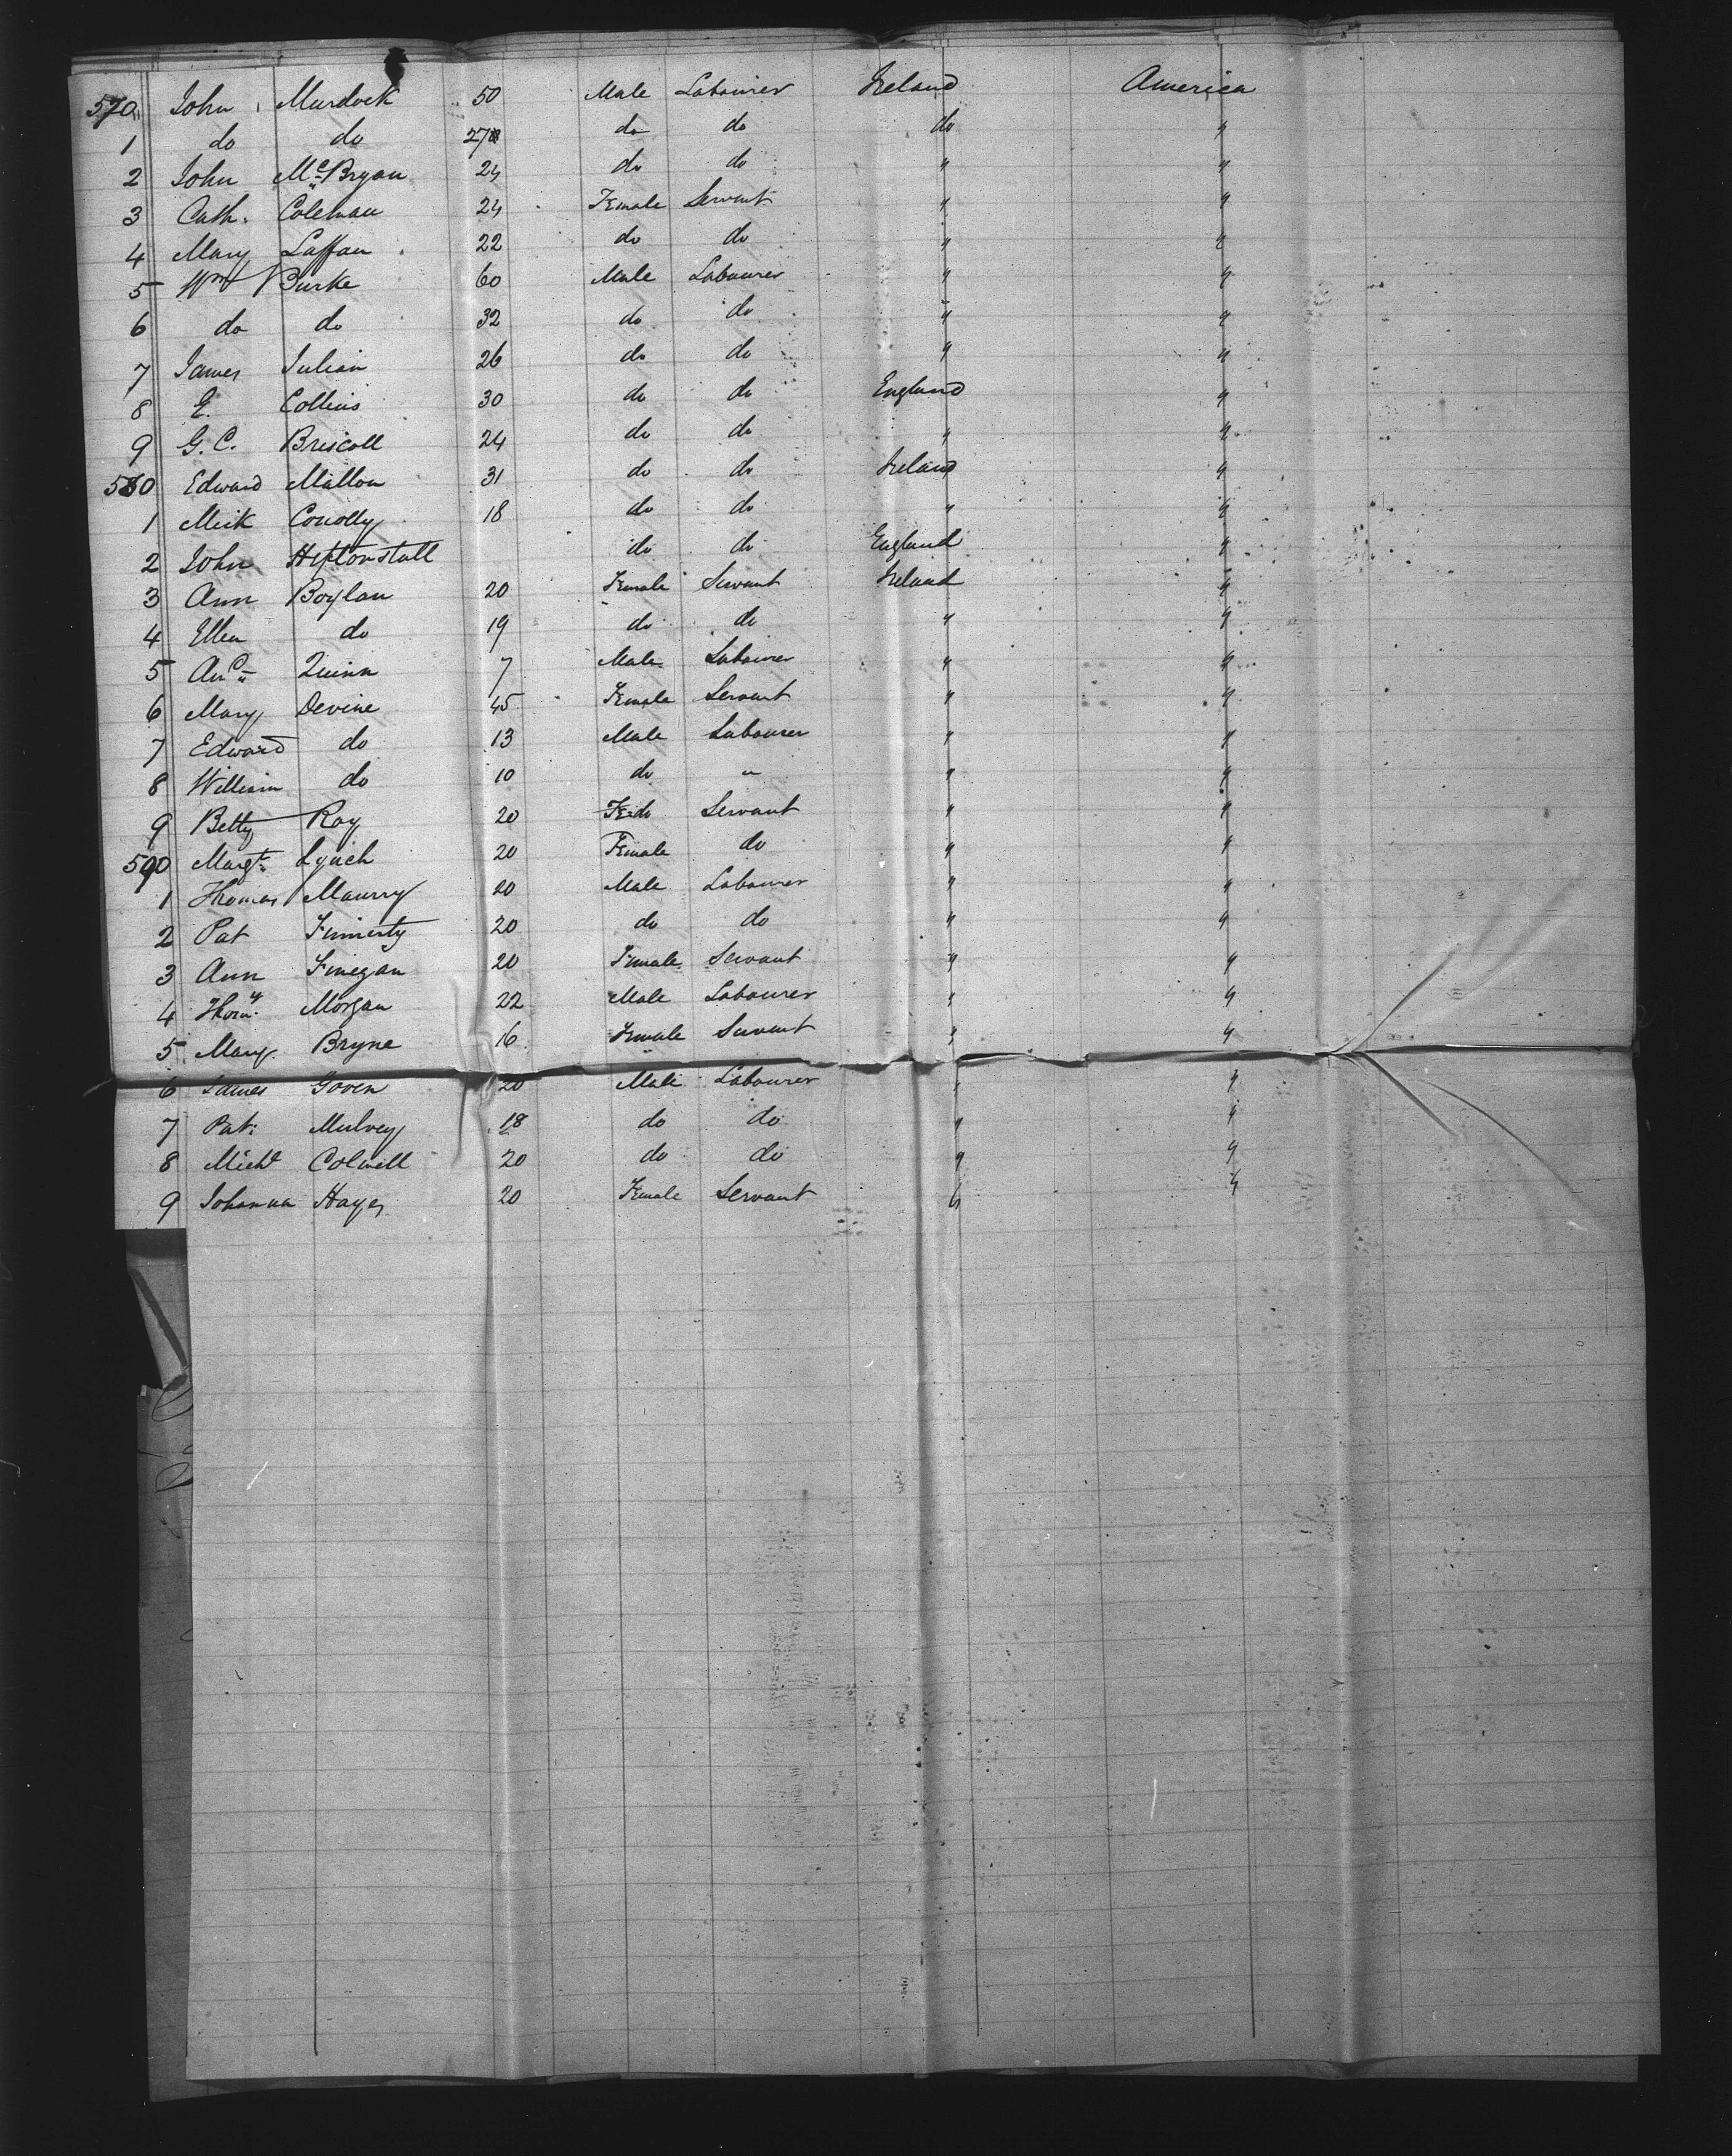 570 John Murdock 50 Male Labourer Ireland America
1 do do 27 do do do "
2 John McBryan 24 do do " "
3 Cath. Coleman 24 Female Servant " "
4 Mary Laffan 22 do do " "
5 Wm Burke 60 Male Labourer " "
6 do do 32 do do " "
7 James Julian 26 do do " "
8 E. Collins 30 do do England "
9 G. C. Briscoll 24 do do " "
580 Edward Mallon 31 do do Ireland "
1 Mick Conolly 18 do do " "
2 John Heptonstall do do England "
3 Ann Boylan 20 Female Servant Ireland "
4 Ellen do 19 do do " "
5 Quinn 7 Male Labourer " "
6 Mary Devine 45 Female Servant " "
7 Edward do 13 Male Labourer " "
8 William do 10 do " " "
9 Betty Roy 20 Fe do Servant " "
590 Margt. Lynch 20 Female do " "
1 Thomas Maurry 20 Male Labourer " "
2 Pat Finnerty 20 do do " "
3 Ann Finegan 20 Female Servant " "
4 Thom. Morgan 22 Male Labourer " "
5 Mary Bryne 16 Female Servant " "
6 James Goven 20 Male Labourer " "
7 Pat: Mulvey 18 do do " "
8 Michl Colwell 20 do do " "
9 Johanna Hayes 20 Female Servant " "